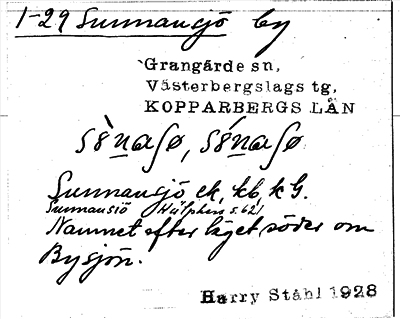 1-29 Sunnansjö by
Grangärde sn,
Västerbergslags tg,
KOPPARBERGS LÄN
sònaſø, sónaſø
Sunnansjö ek, kb, kG.
Sunnansiö Hülphers s. 621
Namnet efter läget söder om
Bysjön.
Harry Ståhl 1928